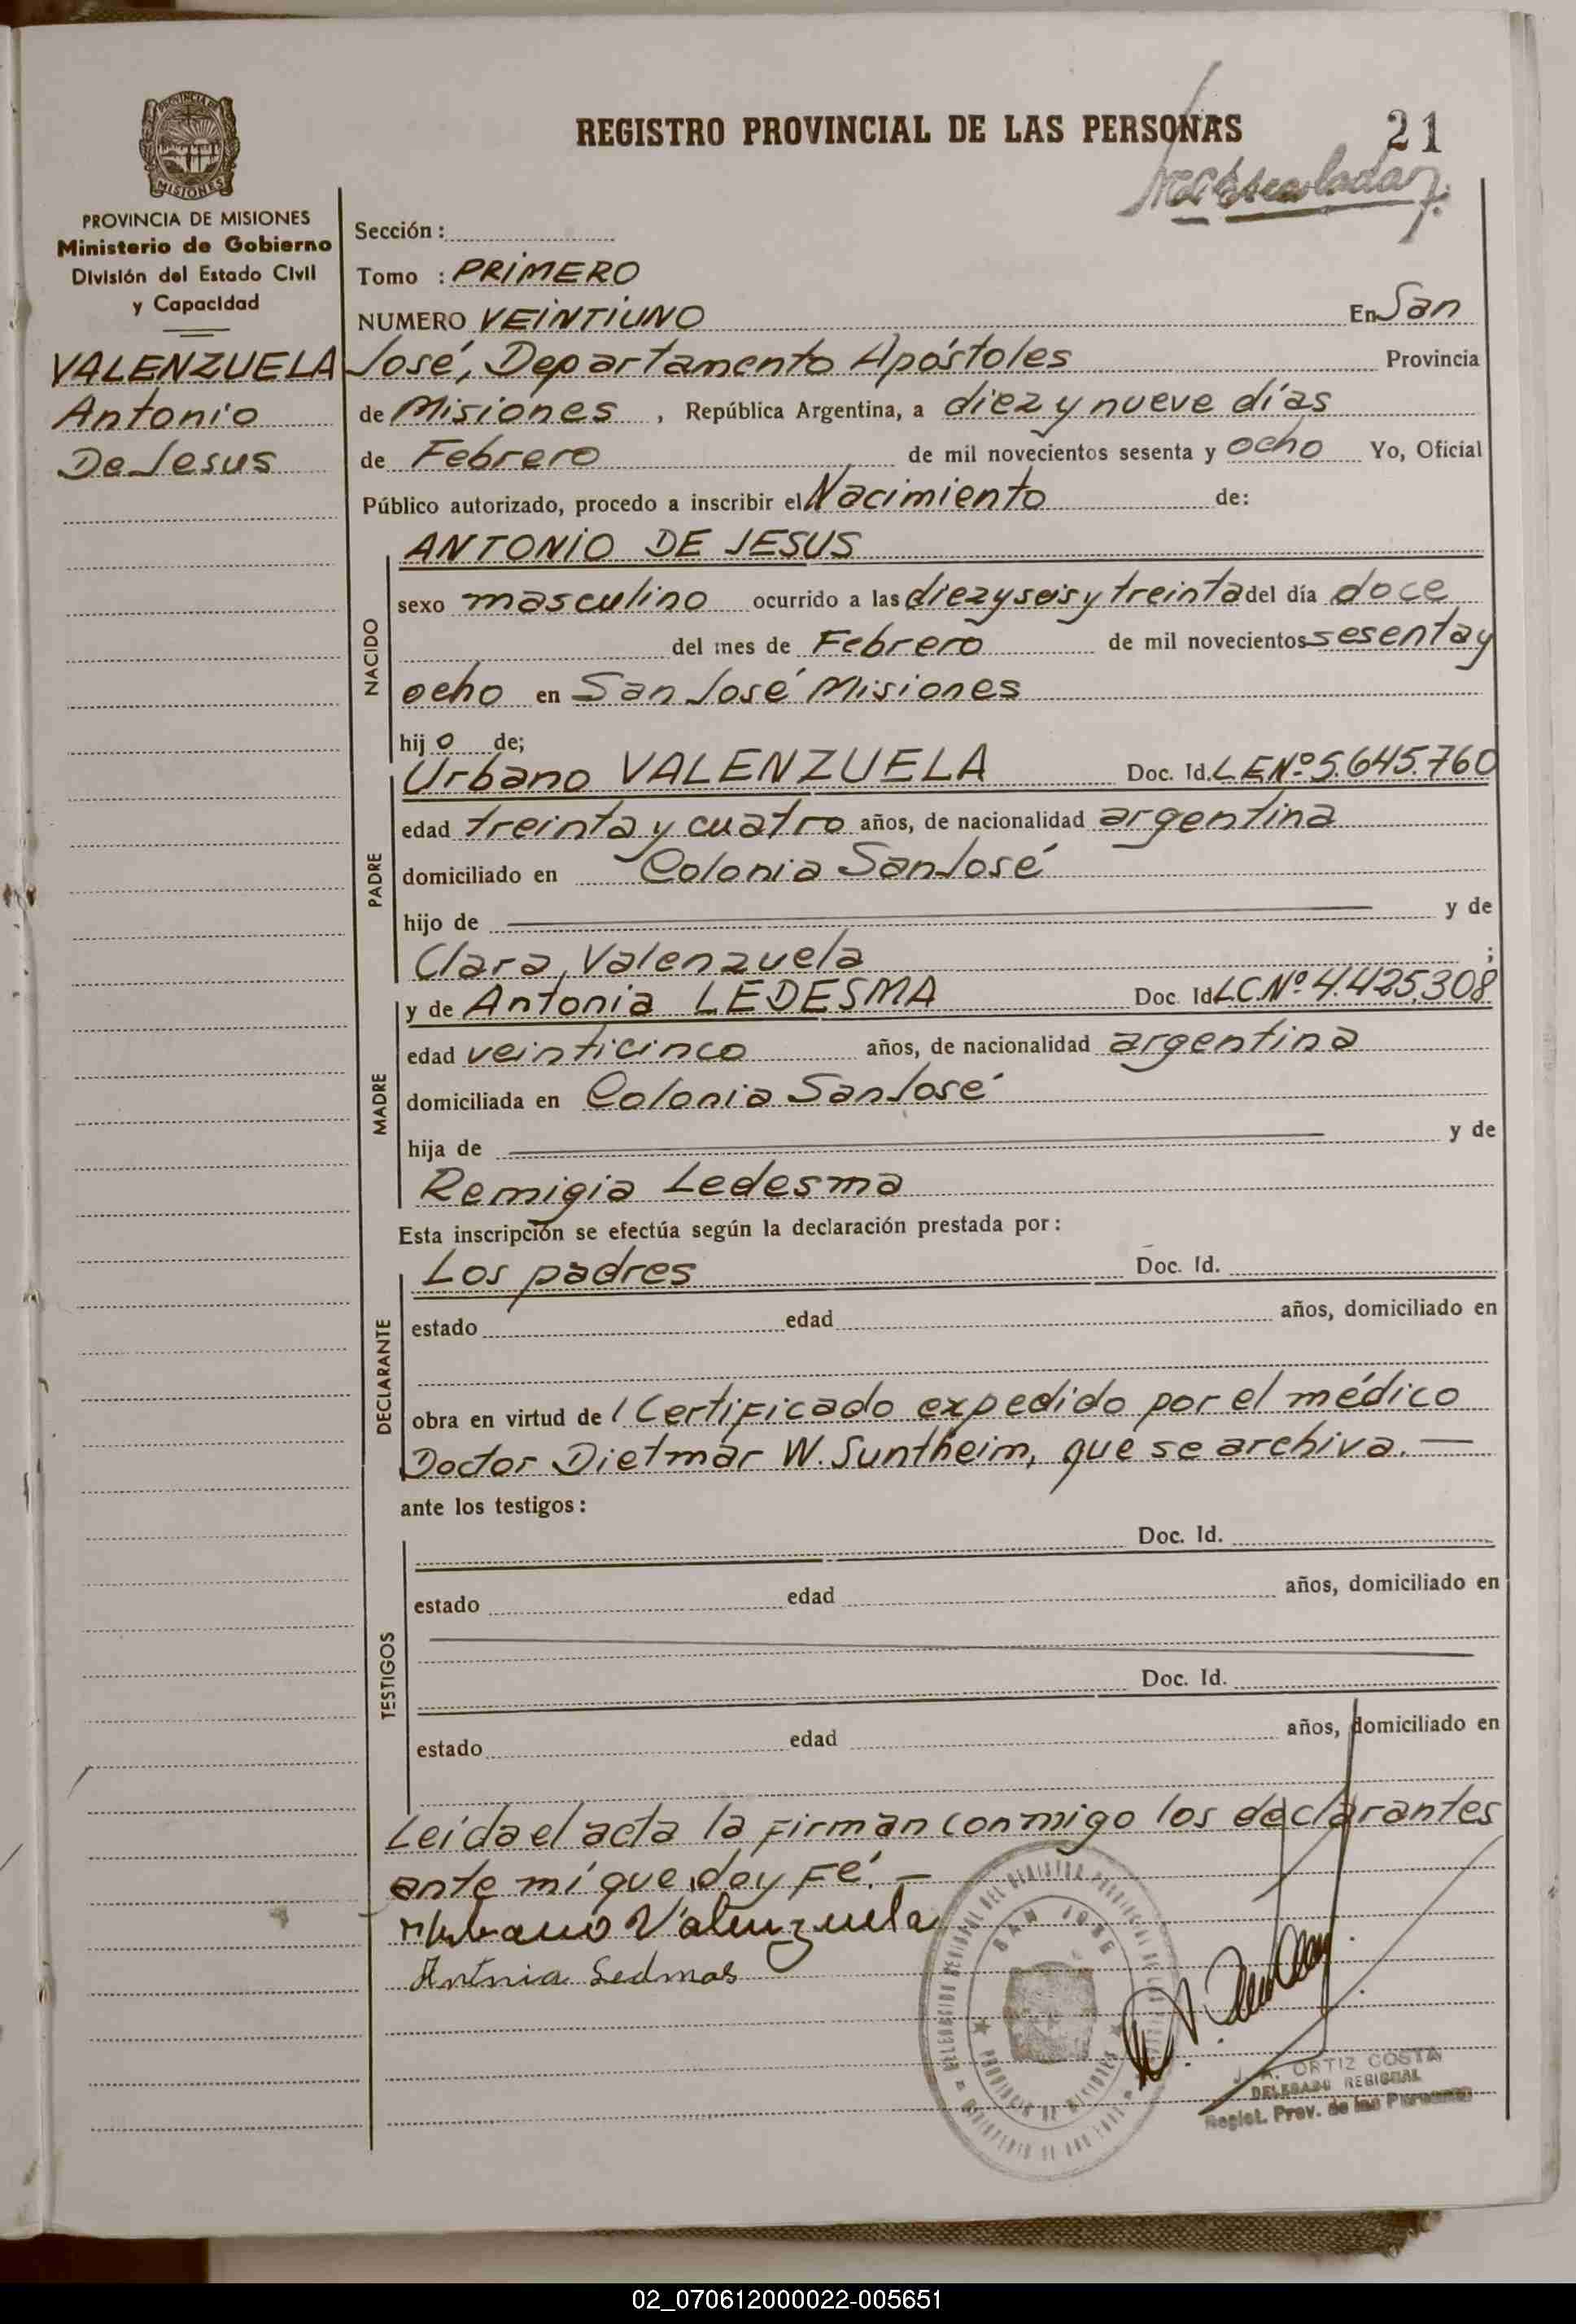 REGISTRO PROVINCIAL DE LAS PERSONAS
21
PROVINCIA DE
MISIONES
PROVINCIA DE MISIONES
Ministerio de Gobierno
División del Estado Civil
y Capacidad
VALENZUELA
Antonio
De Jesus
Sección :
Tomo : PRIMERO
NUMERO VEINTIUNO En San
José, Departamento Apóstoles Provincia
de Misiones , República Argentina, a diez y nueve días
de Febrero de mil novecientos sesenta y ocho Yo, Oficial
Público autorizado, procedo a inscribir el Nacimiento de:
NACIDO
ANTONIO DE JESUS
sexo masculino ocurrido a las diez y seis y treinta del día doce
del mes de Febrero de mil novecientos sesenta y
ocho en San José Misiones
hij o de;
PADRE
Urbano VALENZUELA Doc. Id. L E Nº 5.645.760
edad treinta y cuatro años, de nacionalidad argentina
domiciliado en Colonia San José
hijo de y de
Clara Valenzuela ;
MADRE
y de Antonia LEDESMA Doc. Id L.C. Nº 4.425.308
edad veinticinco años, de nacionalidad argentina
domiciliada en Colonia San José
hija de y de
Remigia Ledesma
Esta inscripción se efectúa según la declaración prestada por :
DECLARANTE
Los padres Doc. Id.
estado edad años, domiciliado en
obra en virtud de l Certificado expedido por el médico
Doctor Dietmar W. Suntheim, que se archiva. —
ante los testigos :
TESTIGOS
Doc. Id.
estado edad años, domiciliado en
Doc. Id.
estado edad años, domiciliado en
Leída el acta la firman conmigo los declarantes
ante mí que doy Fé. —
Urbano Valenzuela
Antnia Ledmas
SAN JOSE
PROVINCIA DE MISIONES
J. A. ORTIZ COSTA
DELEGADO REGIONAL
Regist. Prov. de las Personas
02_070612000022-005651